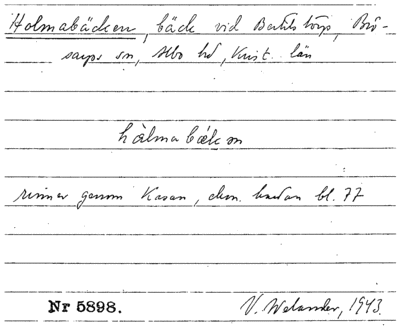 Holmabäcken, bäck vid Bertilstorp, Brö-
sarps sn, Albo hd, Krist. län
hålmabäkən
rinner genom Kasan, dem. kasan bl. 77
Nr 5898.
V. Welander, 1943.